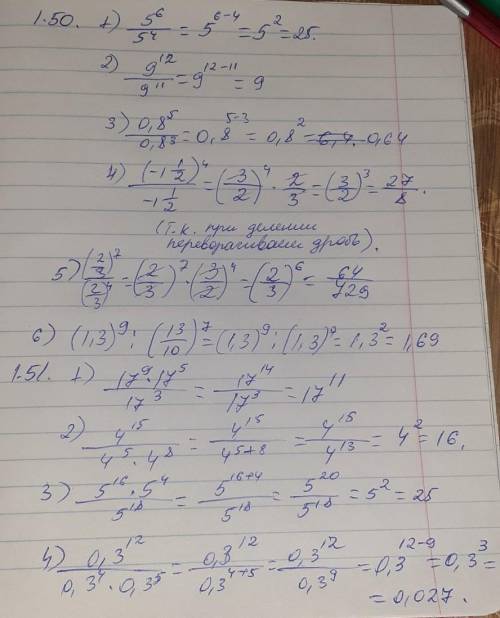 1.50. 1) 5^6/5^4 = 5^(6-4) = 5^2 = 25.
2) 9^12/9^11 = 9^(12-11) = 9
3) 0,8^5/0,8^3 = 0,8^(5-3) = 0,8^2 = 6,4. 0,64
4) (-1 1/2)^4/(-1 1/2) = (-3/2)^4 · 2/3 = (3/2)^3 = 27/8.
(Т.к. при делении
переворачиваем дробь).
5) (2/3)^7/(2/3)^4 = (2/3)^7 · (3/2)^4 = (2/3)^6 = 64/729
6) (1,3)^9 : (13/10)^7 = (1,3)^9 : (1,3)^7 = 1,3^2 = 1,69
1.51. 1) 17^9·17^5/17^3 = 17^14/17^3 = 17^11
2) 4^15/4^5·4^8 = 4^15/4^(5+8) = 4^15/4^13 = 4^2 = 16,
3) 5^16·5^4/5^18 = 5^(16+4)/5^18 = 5^20/5^18 = 5^2 = 25
4) 0,3^12/0,3^4·0,3^5 = 0,3^12/0,3^(4+5) = 0,3^12/0,3^9 = 0,3^(12-9) = 0,3^3 =
= 0,027.